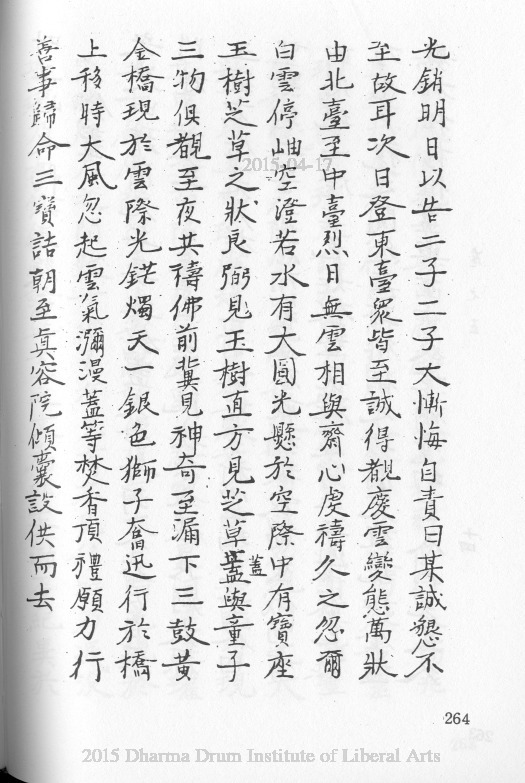 光銷明日以告二子二子大慚悔自責曰某誠懇不
至故耳次日登東臺衆皆至誠得覩慶雲變態萬狀
由北臺至中臺烈日無雲相與齋心虔禱久之忽爾
白雲停岫空澄若水有大圓光懸於空際中有寶座
玉樹芝草之狀良弼見玉樹直方見芝草蓋與童子
蓋
三物俱覩至夜共禱佛前冀見神奇至漏下三鼓黃
金橋現於雲際光鋩燭天一銀色獅子奮迅行於橋
上移時大風忽起雲氣瀰漫蓋等焚香頂禮願力行
善事歸命三寶詰朝至眞容院傾囊設供而去
264
2015-04-17
2015 Dharma Drum Institute of Liberal Arts